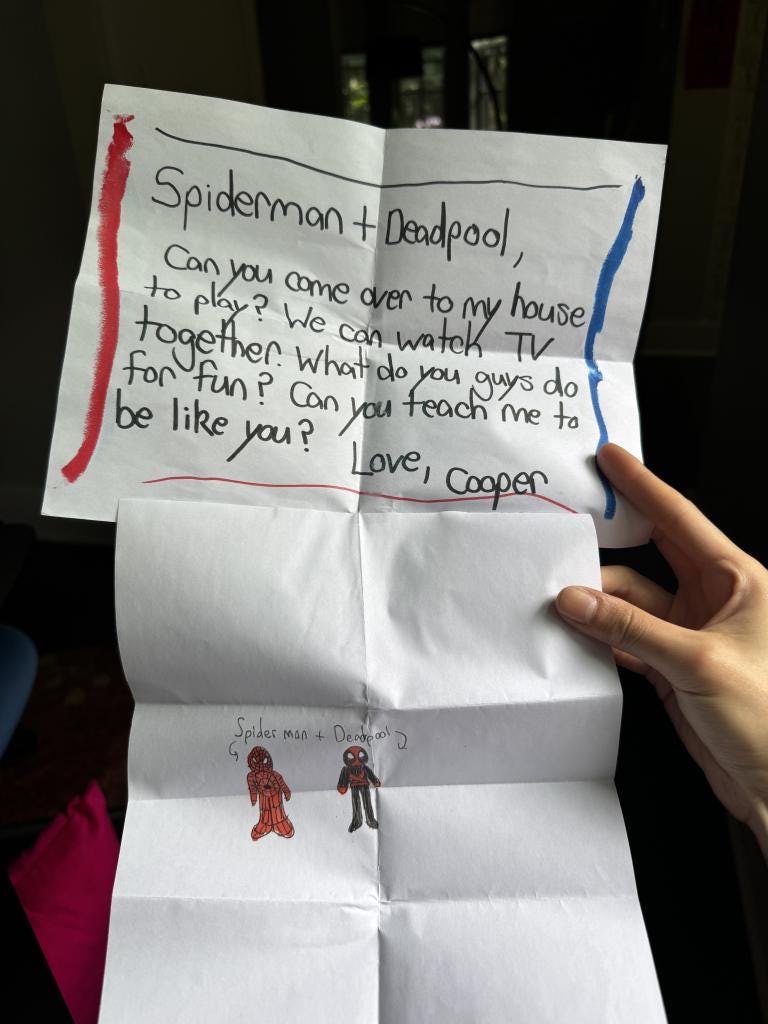 Spiderman + Deadpool,
Can you come over to my house
to play? We can watch TV
together. What do you guys do
for fun? Can you teach me to
be like you?
Love, Cooper
Spider man + Deadpool